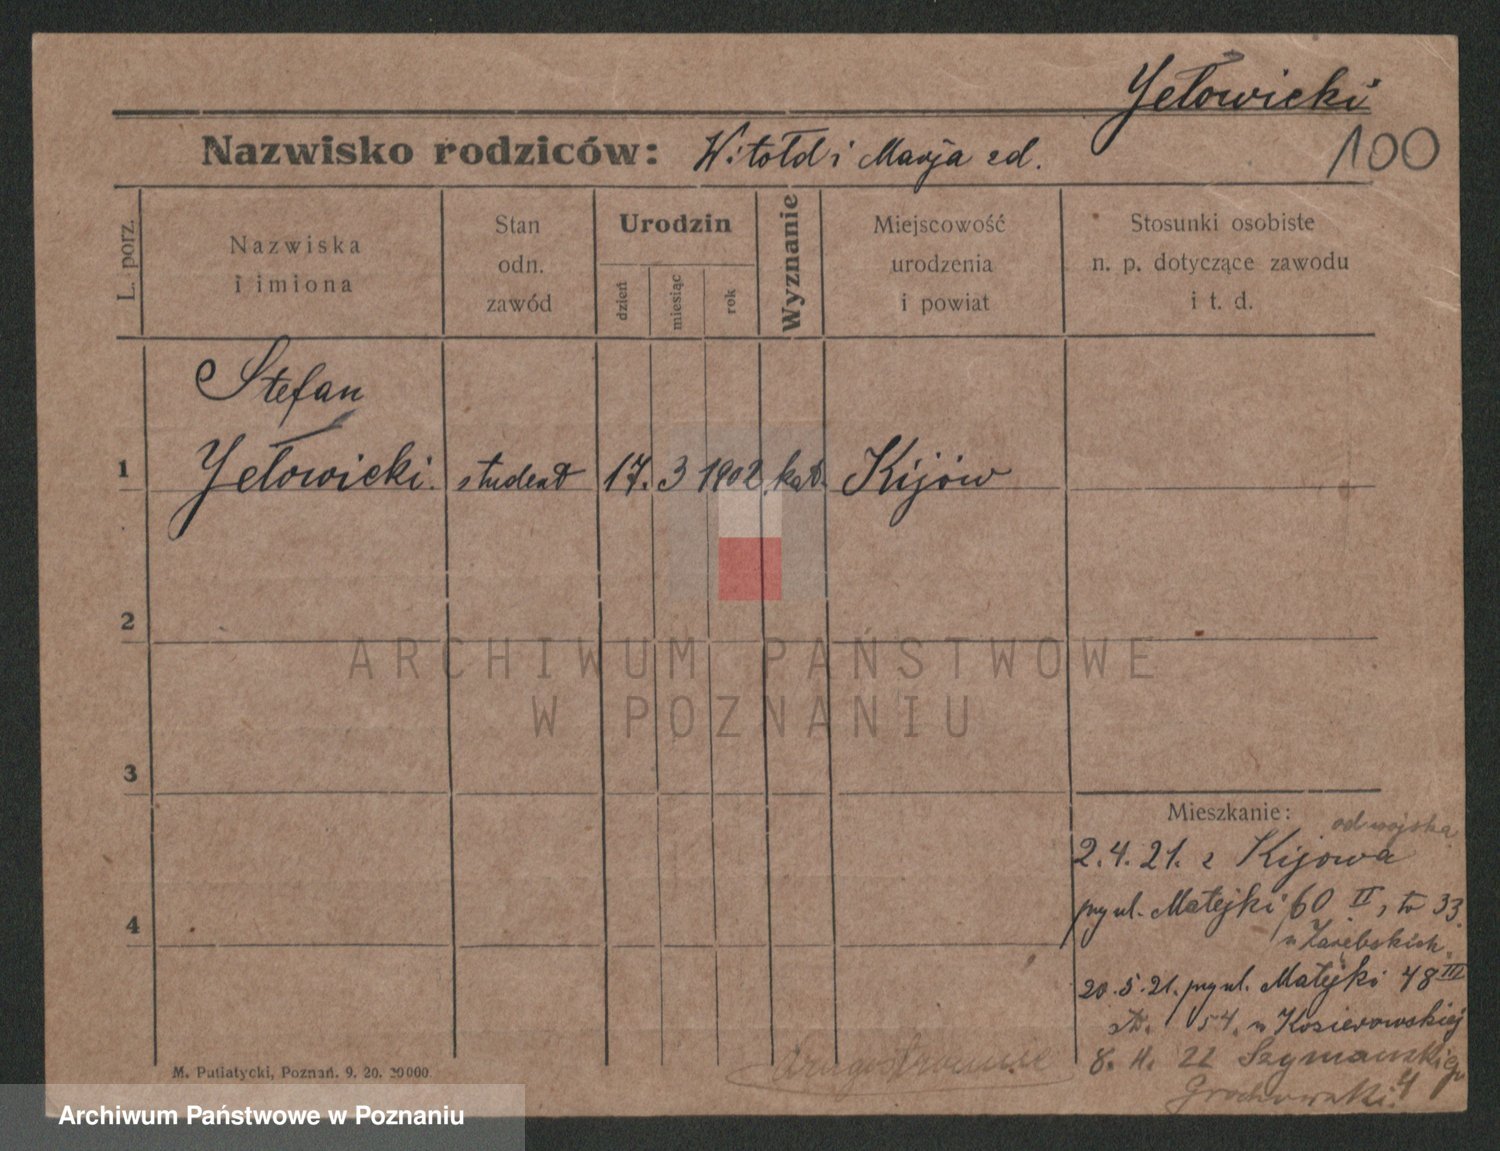 Jełowicki
100
Nazwisko rodziców: Witołd i Marja zd.
L. porz.
Nazwiska
i imiona
Stan
odn.
zawód
Urodzin
dzień
miesiąc
rok
Wyznanie
Miejscowość
urodzenia
i powiat
Stosunki osobiste
n. p. dotyczące zawodu
i t. d.
Stefan
1 Jełowicki. student 17. 3 1902 kat. Kijów
2
3
4
ARCHIWUM PAŃSTWOWE
W POZNANIU
Mieszkanie:
od wojska
2.4.21. z Kijowa
przy ul. Matejki 60 II, 33.
u Zarębskich
20.5.21. przy ul. Matejki 48 III
54. u Kosierowskiej
8. 22 Szymańskiego 4
Grochowski
drugostronnie
M. Putiatycki, Poznań. 9. 20. 20000
Archiwum Państwowe w Poznaniu